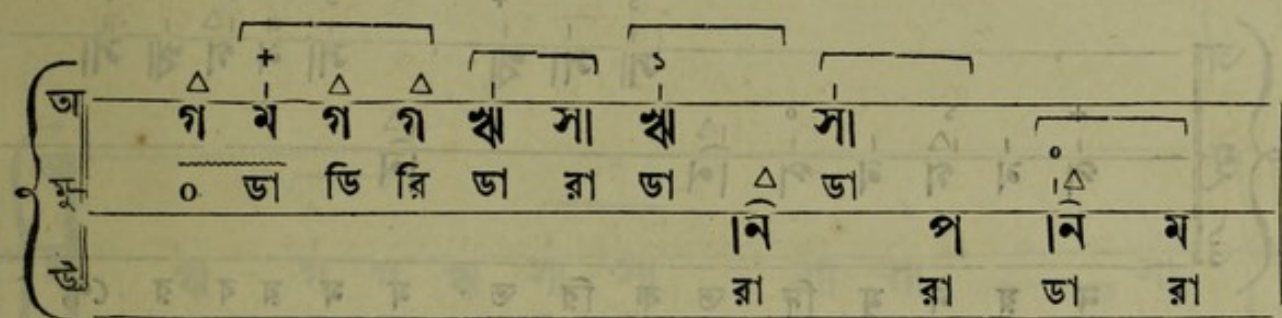 + ১
△ △ △
আ গ ম গ গ ঋ সা ঋ সা
০
০ ডা ডি রি ডা রা ডা △ ডা △
নি প নি ম
রা রা ডা রা